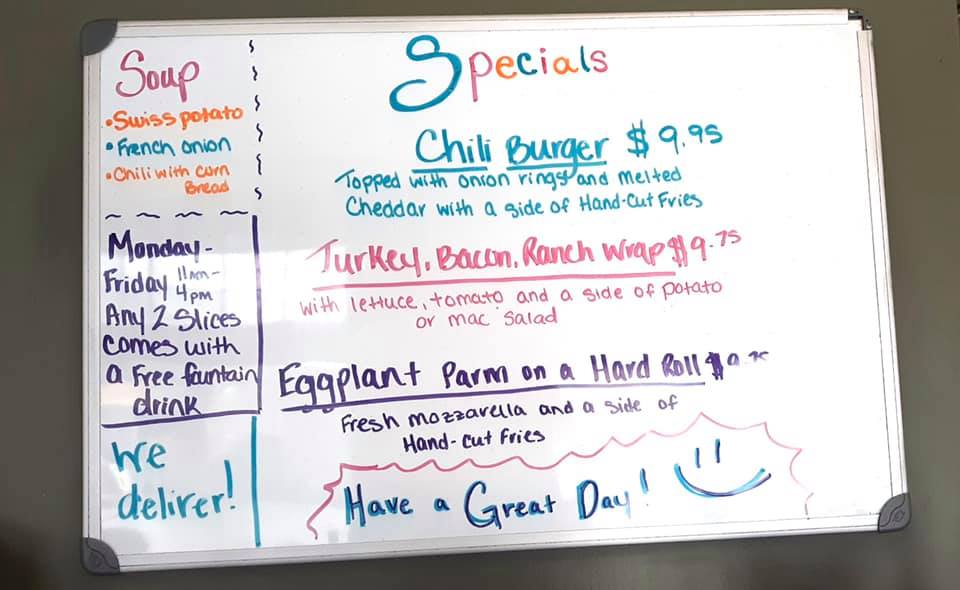 Soup
•Swiss potato
•French onion
•Chili with corn
Bread
Monday-
Friday 11am-
4pm
Any 2 Slices
comes with
a Free fountain
drink
We
deliver!
Specials
Chili Burger $9.95
Topped with onion rings and melted
Cheddar with a side of Hand-Cut Fries
Turkey, Bacon, Ranch Wrap $9.75
with lettuce, tomato and a side of potato
or mac salad
Eggplant Parm on a Hard Roll
Fresh mozzarella and a side of
Hand-cut Fries
Have a Great Day!